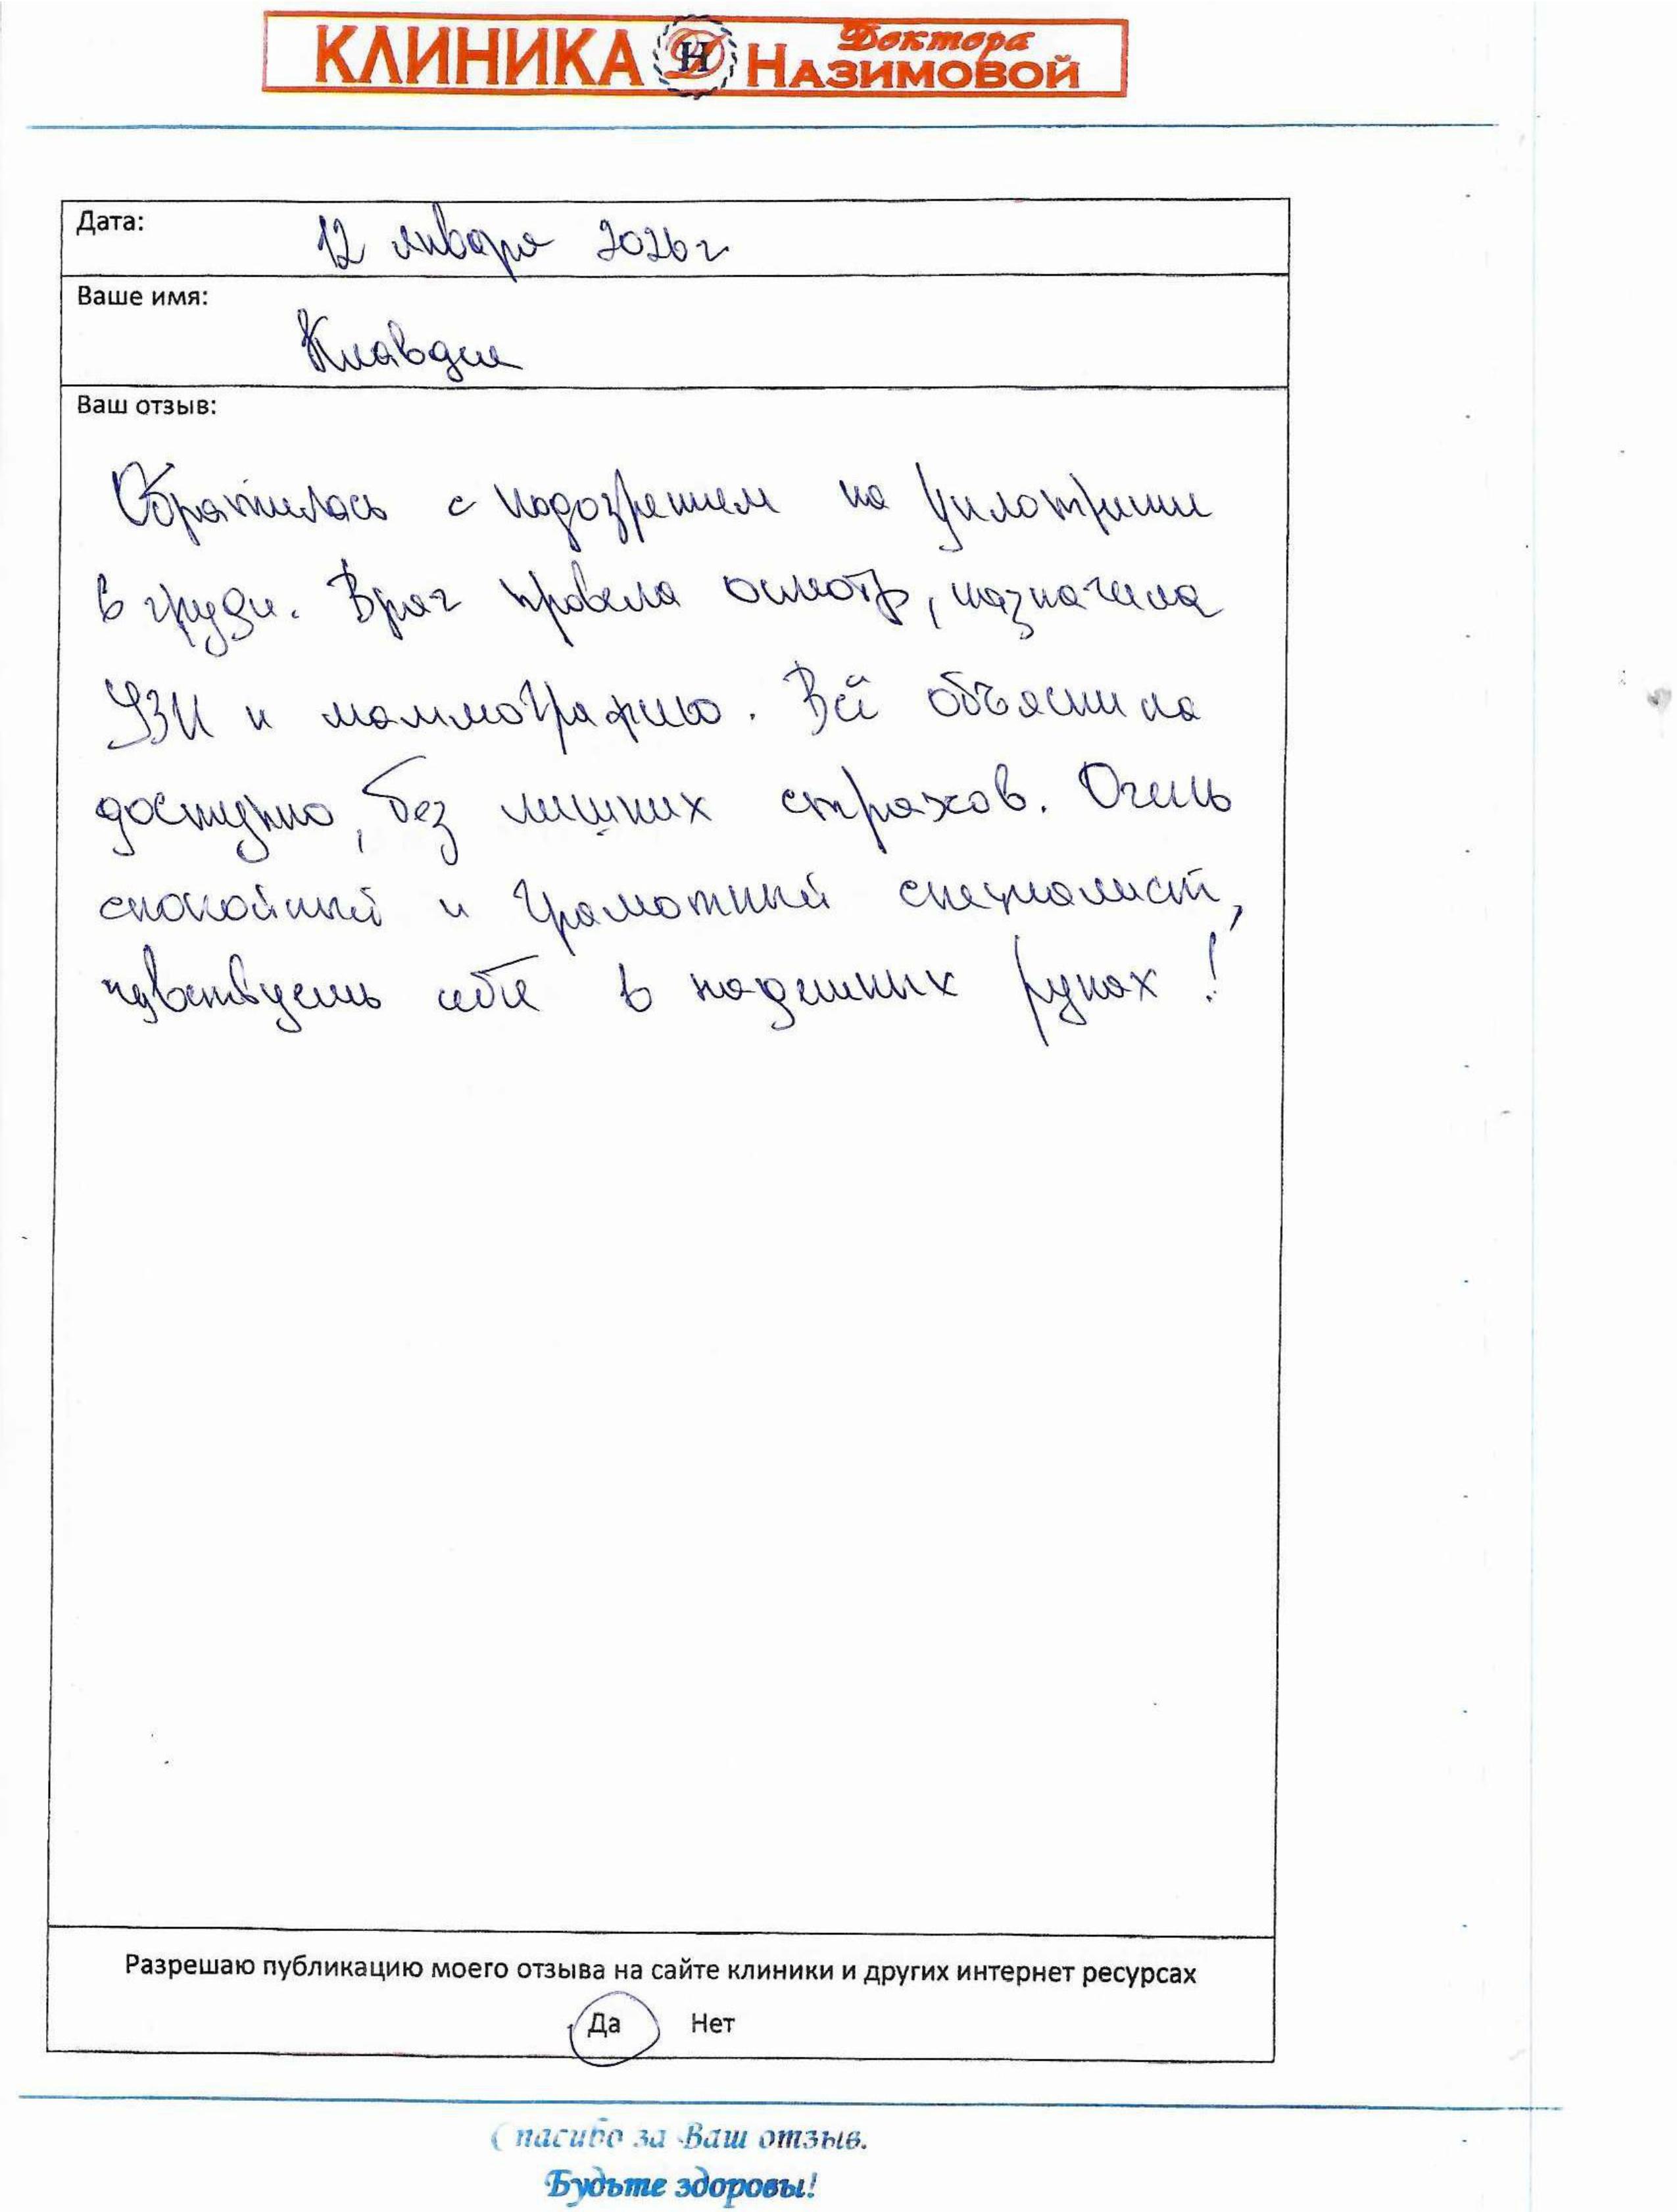 КЛИНИКА Доктора НАЗИМОВОЙ
Дата: 12 января 2026 г
Ваше имя:
Клавдия
Ваш отзыв:
Обратилась с подозрением на уплотнения
в груди. Врач провела осмотр, назначила
УЗИ и маммографию. Всё объяснила
доступно, без лишних страхов. Очень
спокойный и грамотный специалист,
чувствуешь себя в надежных руках!
Разрешаю публикацию моего отзыва на сайте клиники и других интернет ресурсах
Да Нет
Спасибо за Ваш отзыв.
Будьте здоровы!